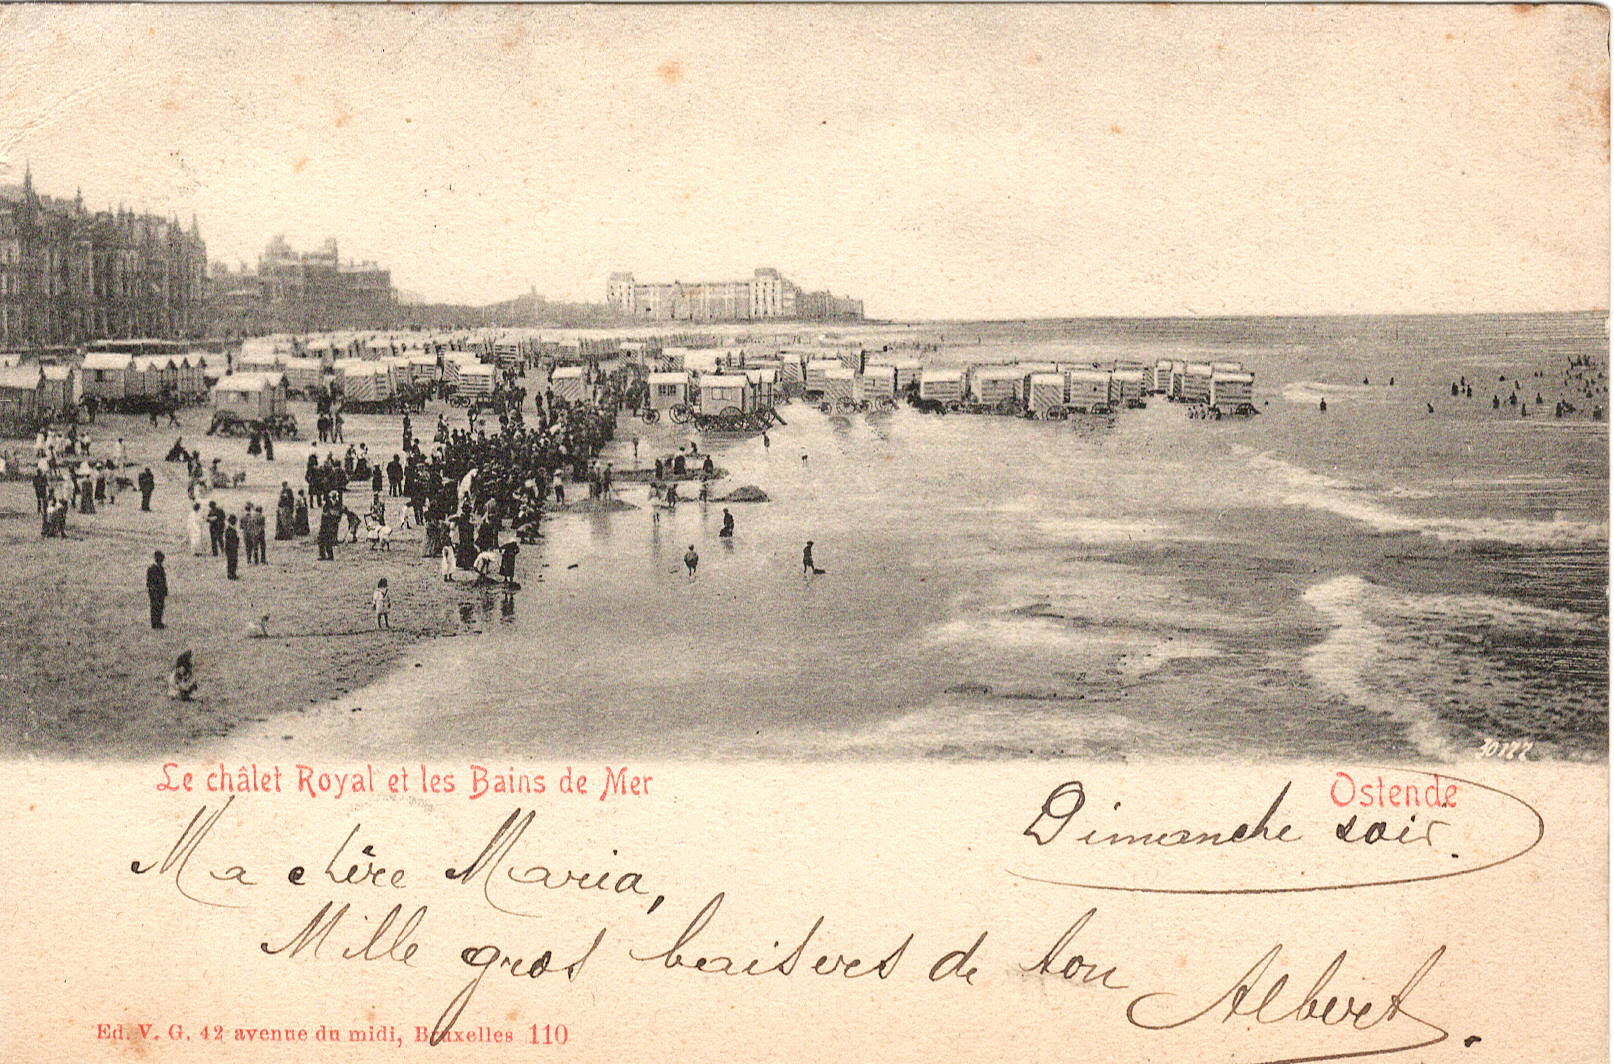 30122
Le châlet Royal et les Bains de Mer
Ostende
Dimanche soir.
Ma chère Maria,
Mille gros baisers de ton
Albert.
Ed. V. G. 42 avenue du midi, Bruxelles 110